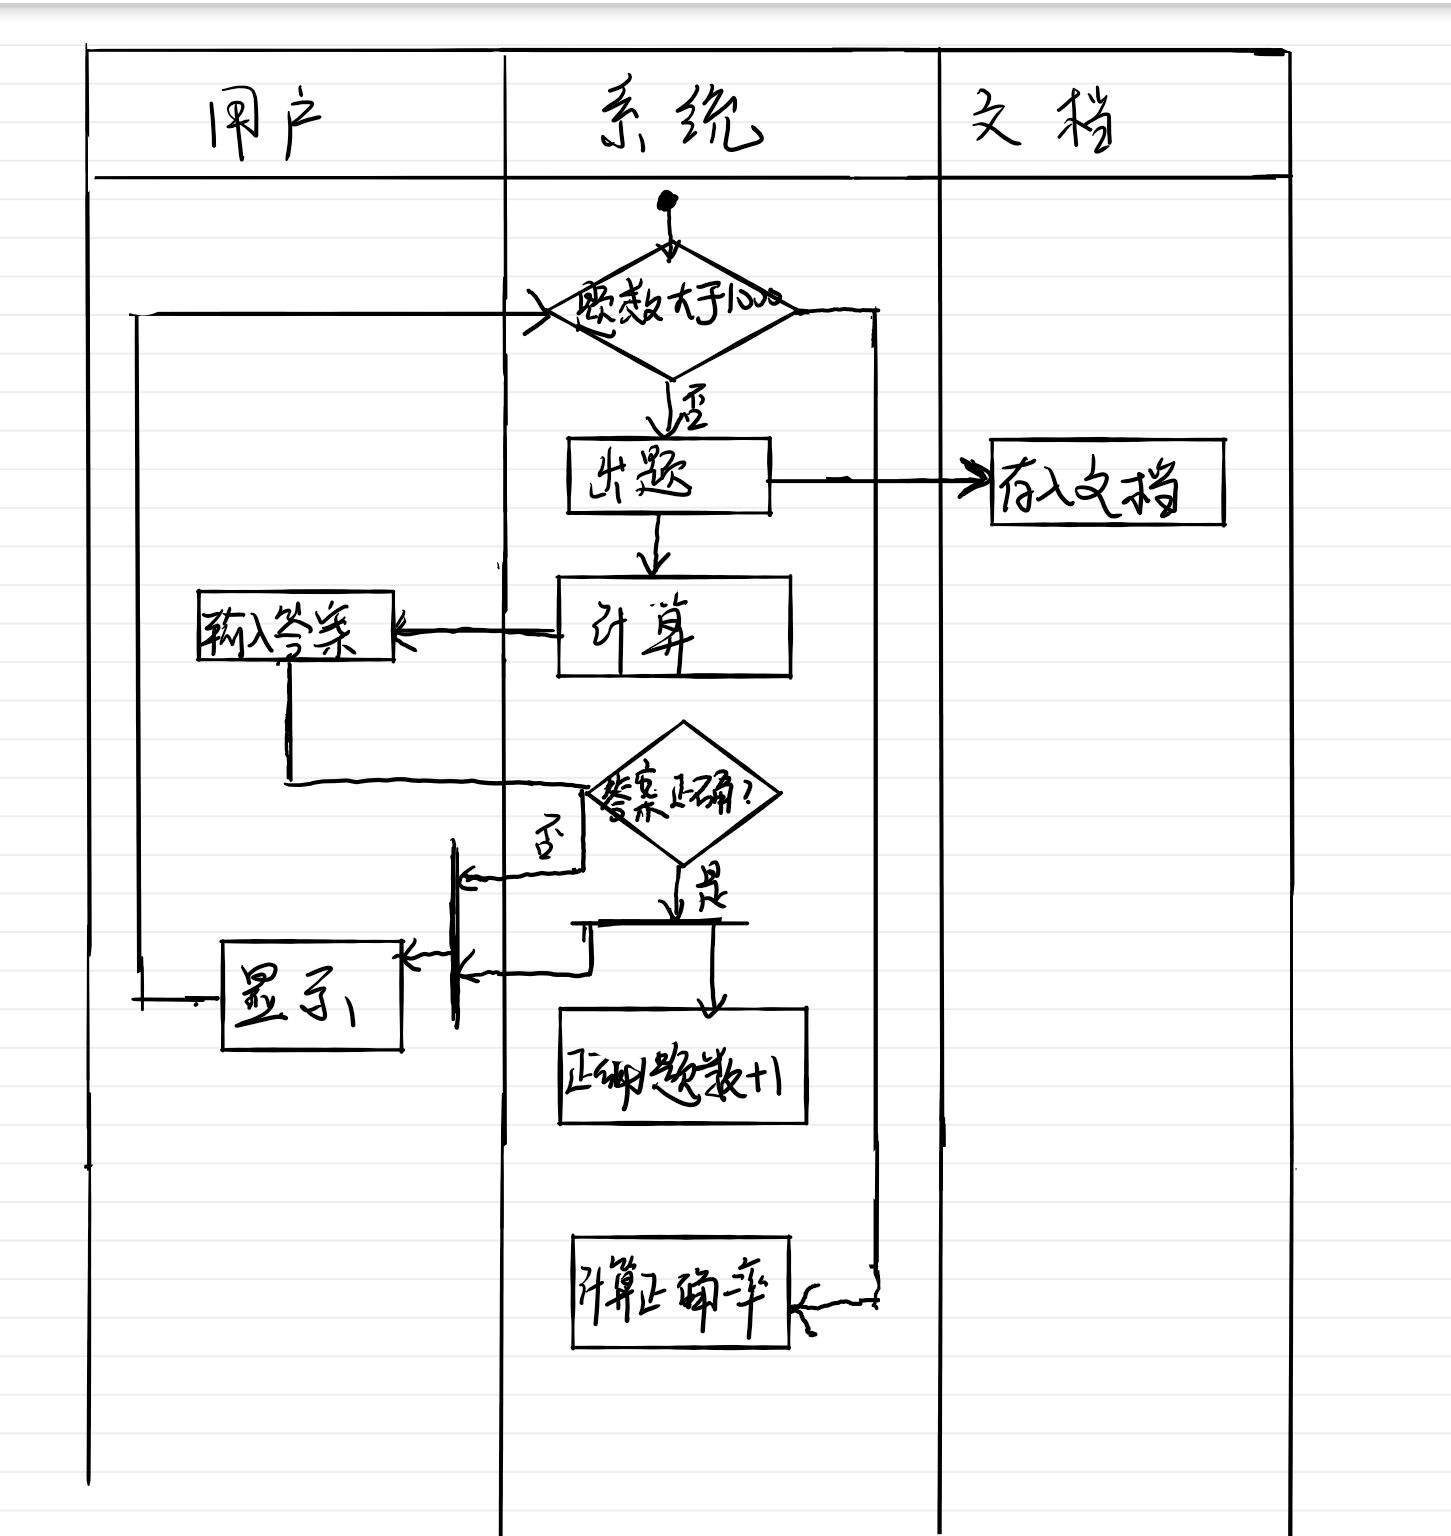 用户 系统 文档
题数大于1000
否
出题
存入文档
计算
输入答案
答案正确?
否
是
显示
正确题数+1
计算正确率